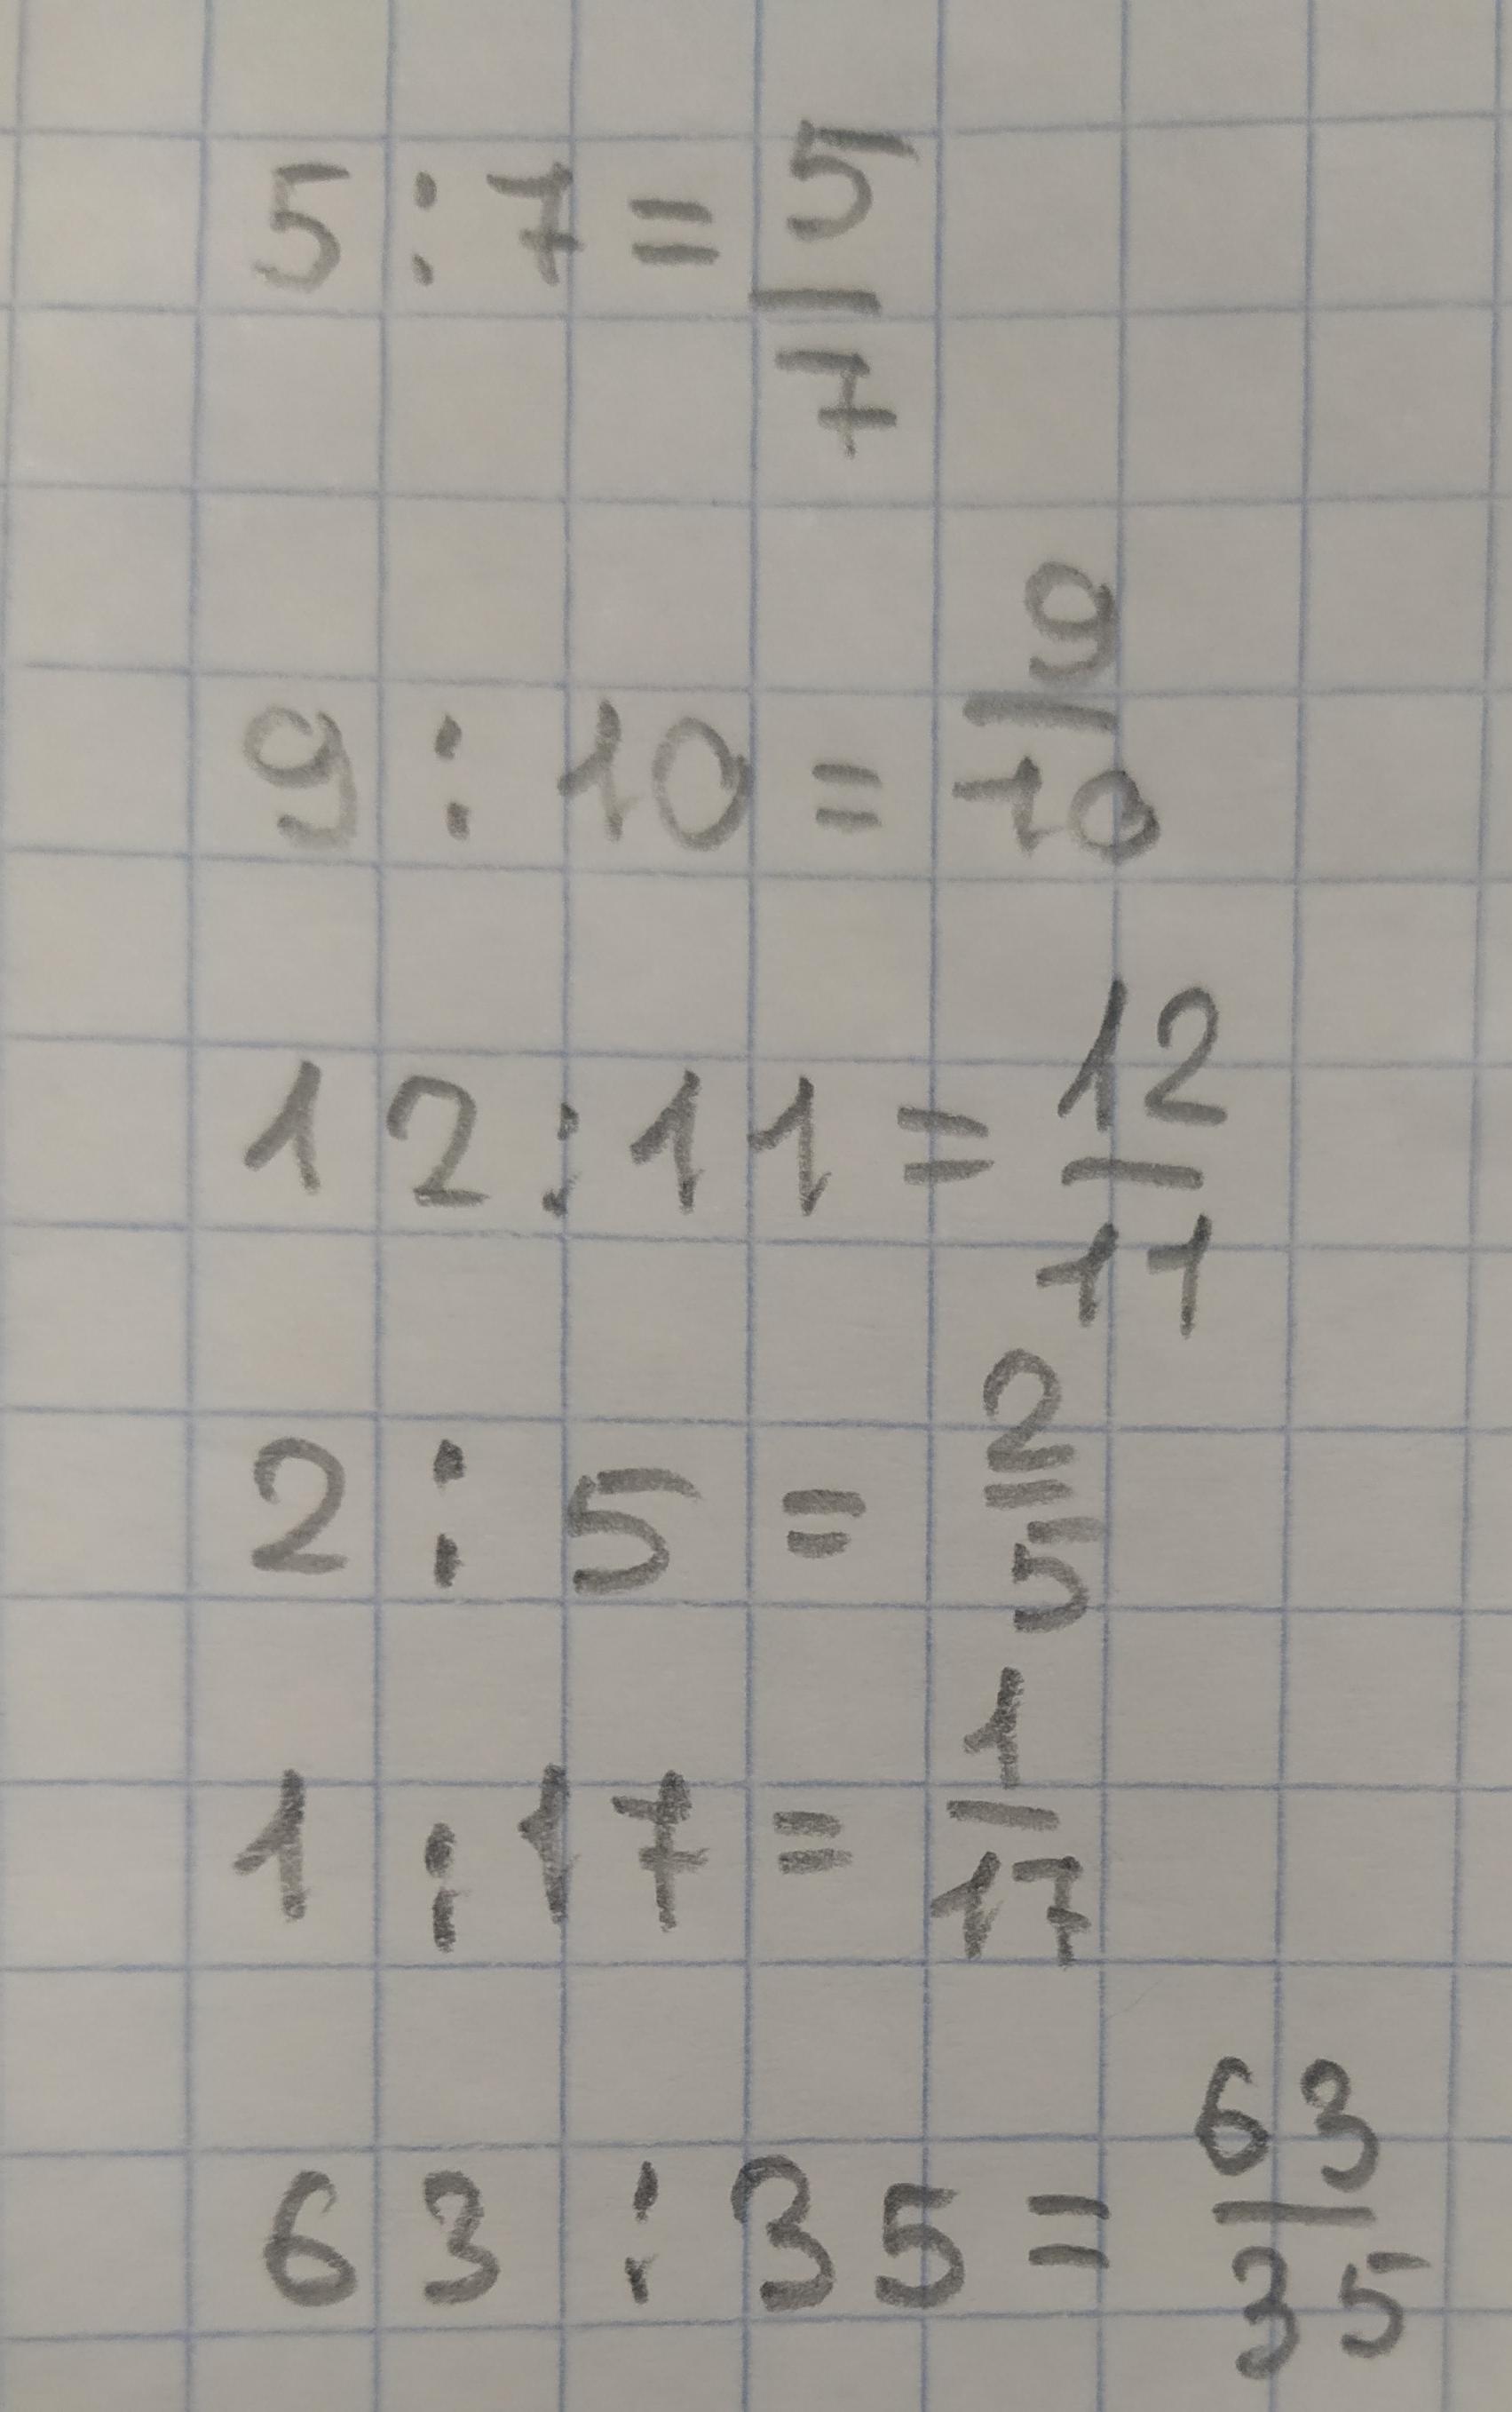 5 : 7 = 5/7
9 : 10 = 9/10
12 : 11 = 12/11
2 : 5 = 2/5
1 : 17 = 1/17
63 : 35 = 63/35